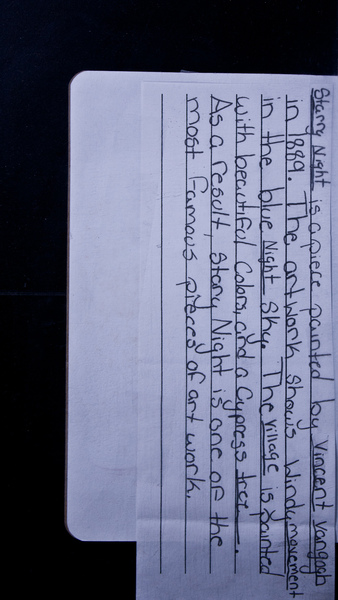 Starry Night is a piece painted by Vincent Vangogh
in 1889. The artwork shows Windy movement
in the blue Night Sky. The village is painted
with beautiful Colors, and a Cypress tree.
As a result, Starry Night is one of the
most famous pieces of art work.